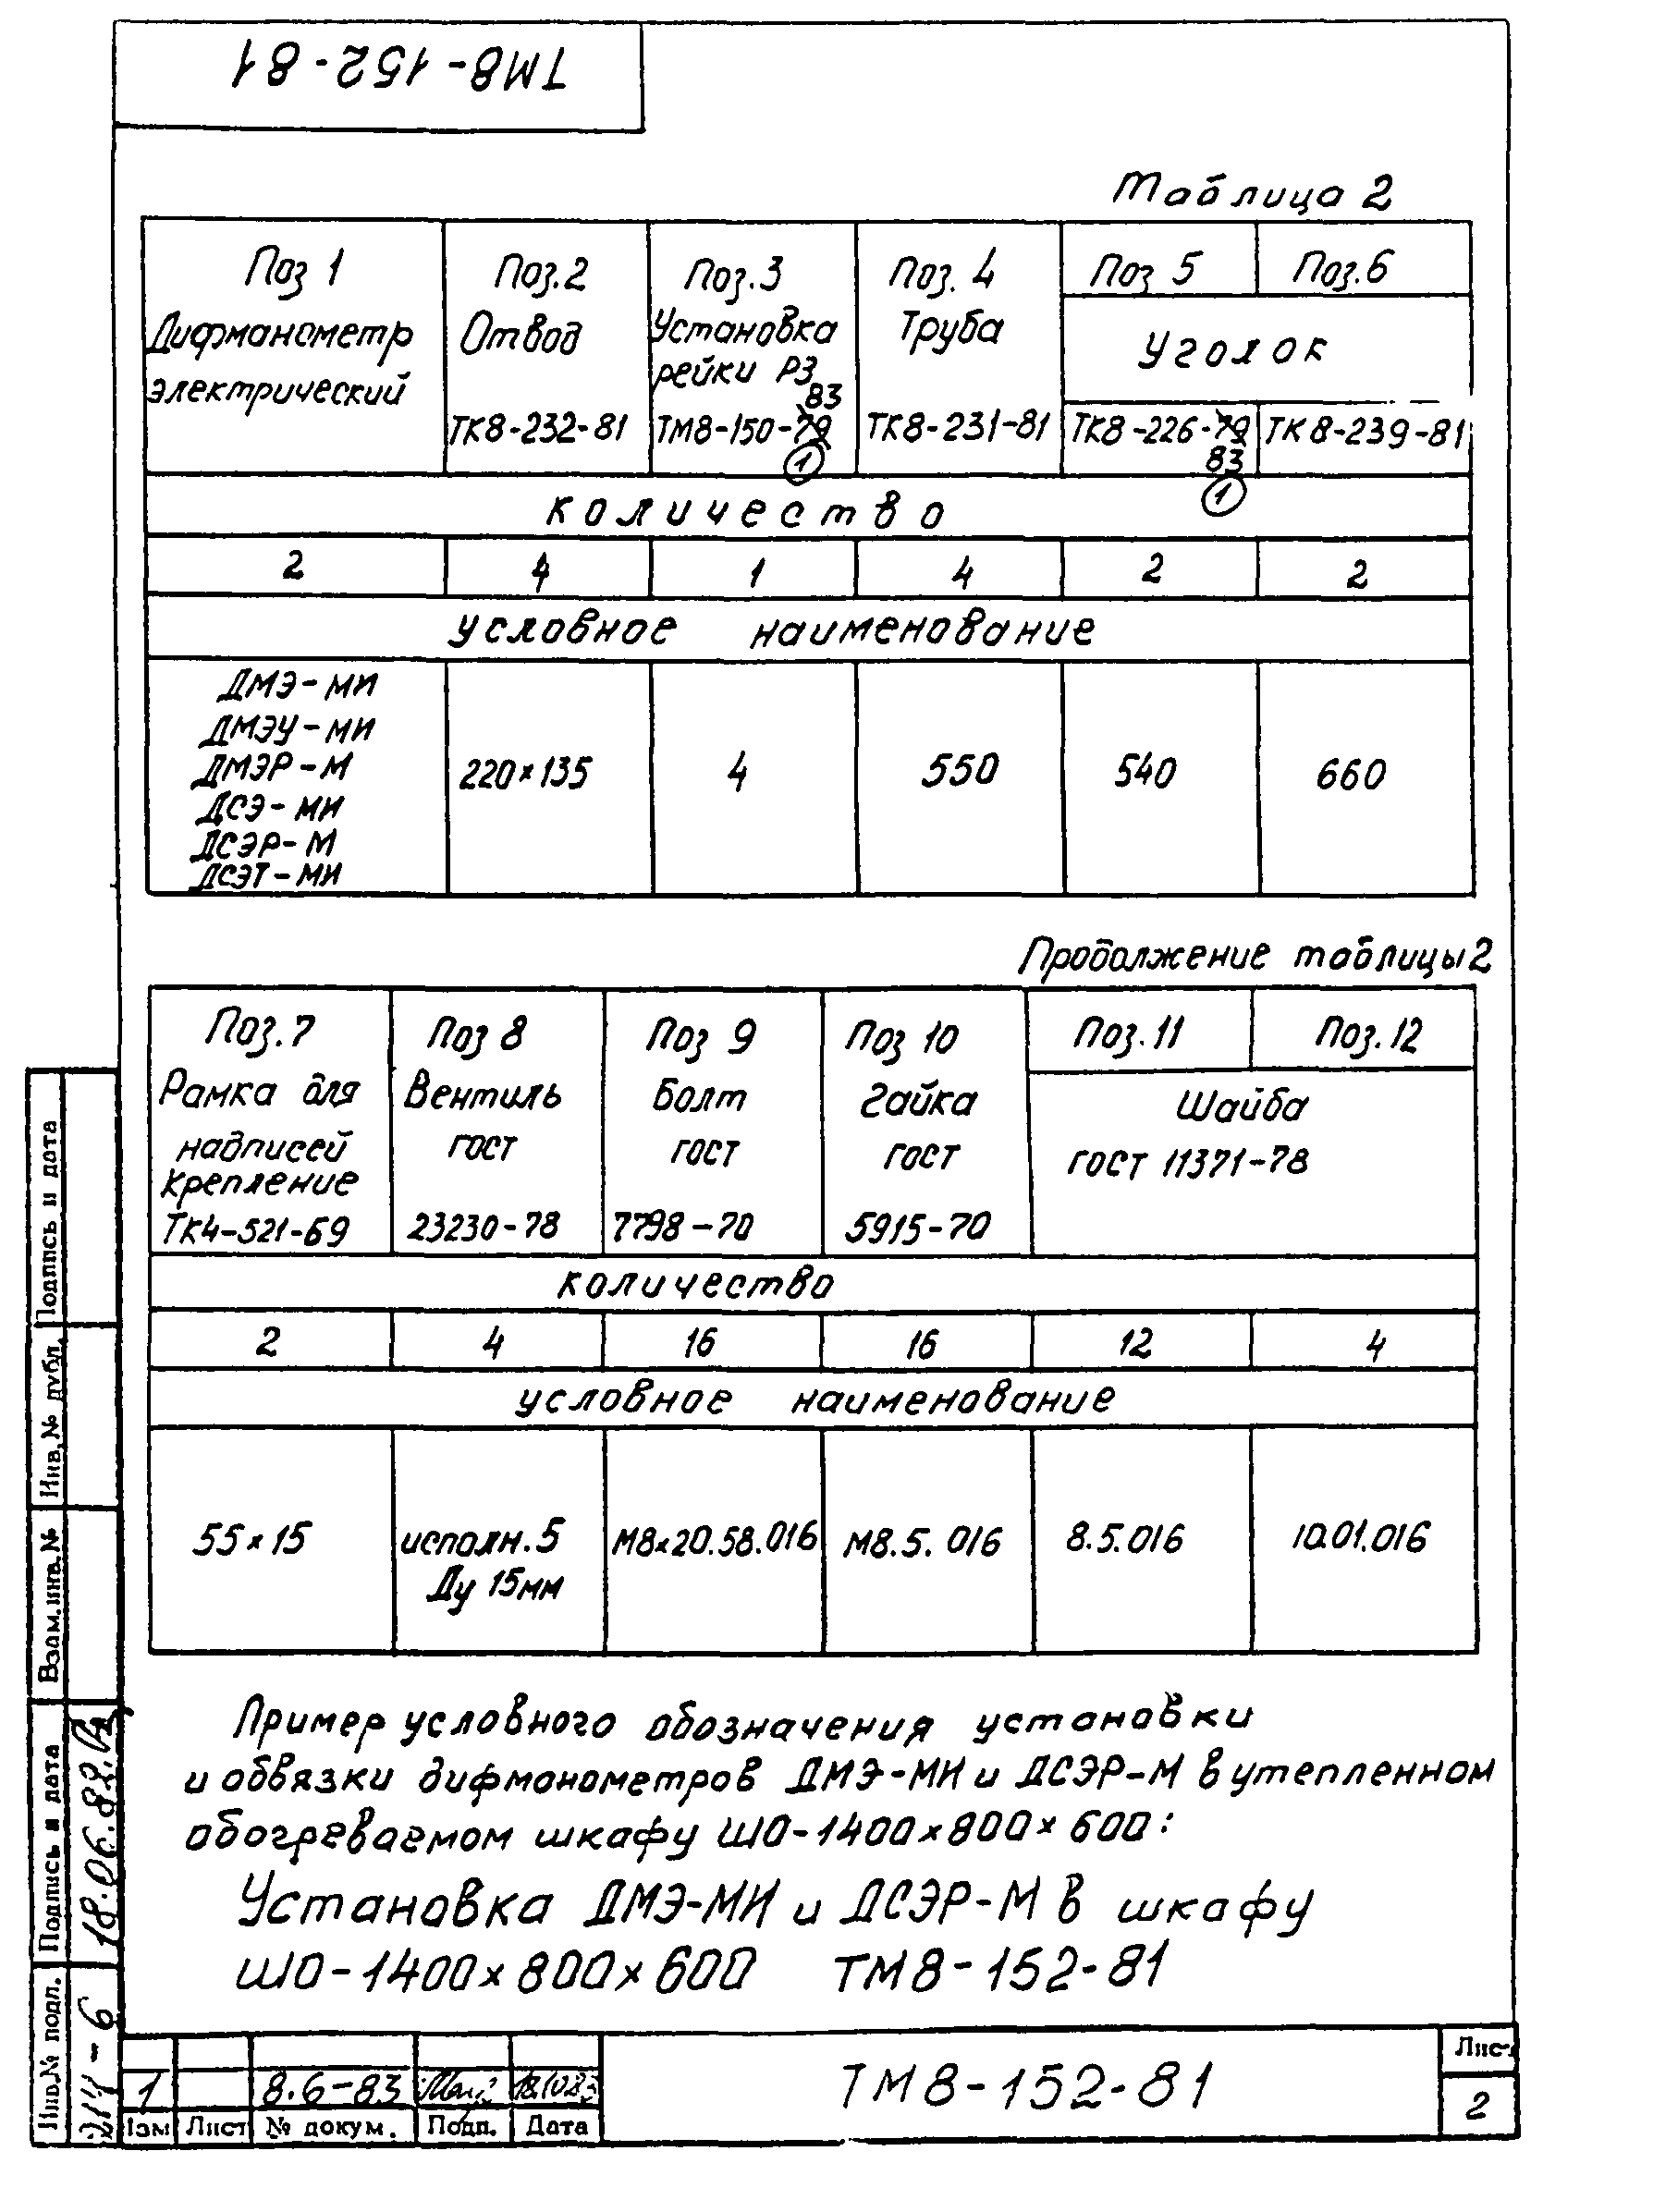 ТМ8-152-81
Таблица 2
Поз 1 Поз.2 Поз.3 Поз. 4 Поз 5 Поз.6
Дифманометр электрический
Отвод
ТК8-232-81
Установка
рейки РЗ
83
ТМ8-150-79
1
Труба
ТК8-231-81
Уголок
ТК8-226-79
83
1
ТК8-239-81
количество
2 4 1 4 2 2
условное наименование
ДМЭ-МИ
ДМЭУ-МИ
ДМЭР-М
ДСЭ-МИ
ДСЭР-М
ДСЭТ-МИ
220×135 4 550 540 660
Продолжение таблицы 2
Поз.7 Поз 8 Поз 9 Поз 10 Поз.11 Поз.12
Рамка для
надписей
крепление
ТК4-521-69
Вентиль
гост
23230-78
Болт
гост
7798-70
Гайка
гост
5915-70
Шайба
гост 11371-78
количество
2 4 16 16 12 4
условное наименование
55×15
исполн.5
Ду 15мм
М8×20.58.016
М8.5.016
8.5.016
10.01.016
Пример условного обозначения установки
и обвязки дифманометров ДМЭ-МИ и ДСЭР-М в утепленном
обогреваемом шкафу ШО-1400×800×600:
Установка ДМЭ-МИ и ДСЭР-М в шкафу
ШО-1400×800×600 ТМ8-152-81
Подпись и дата
Инв.№ дубл.
Взам.инв.№
Подпись и дата
18.06.82
Инв.№ подл.
214-6
1 8.6-83
Изм Лист № докум. Подп. Дата
ТМ8-152-81
Лист
2